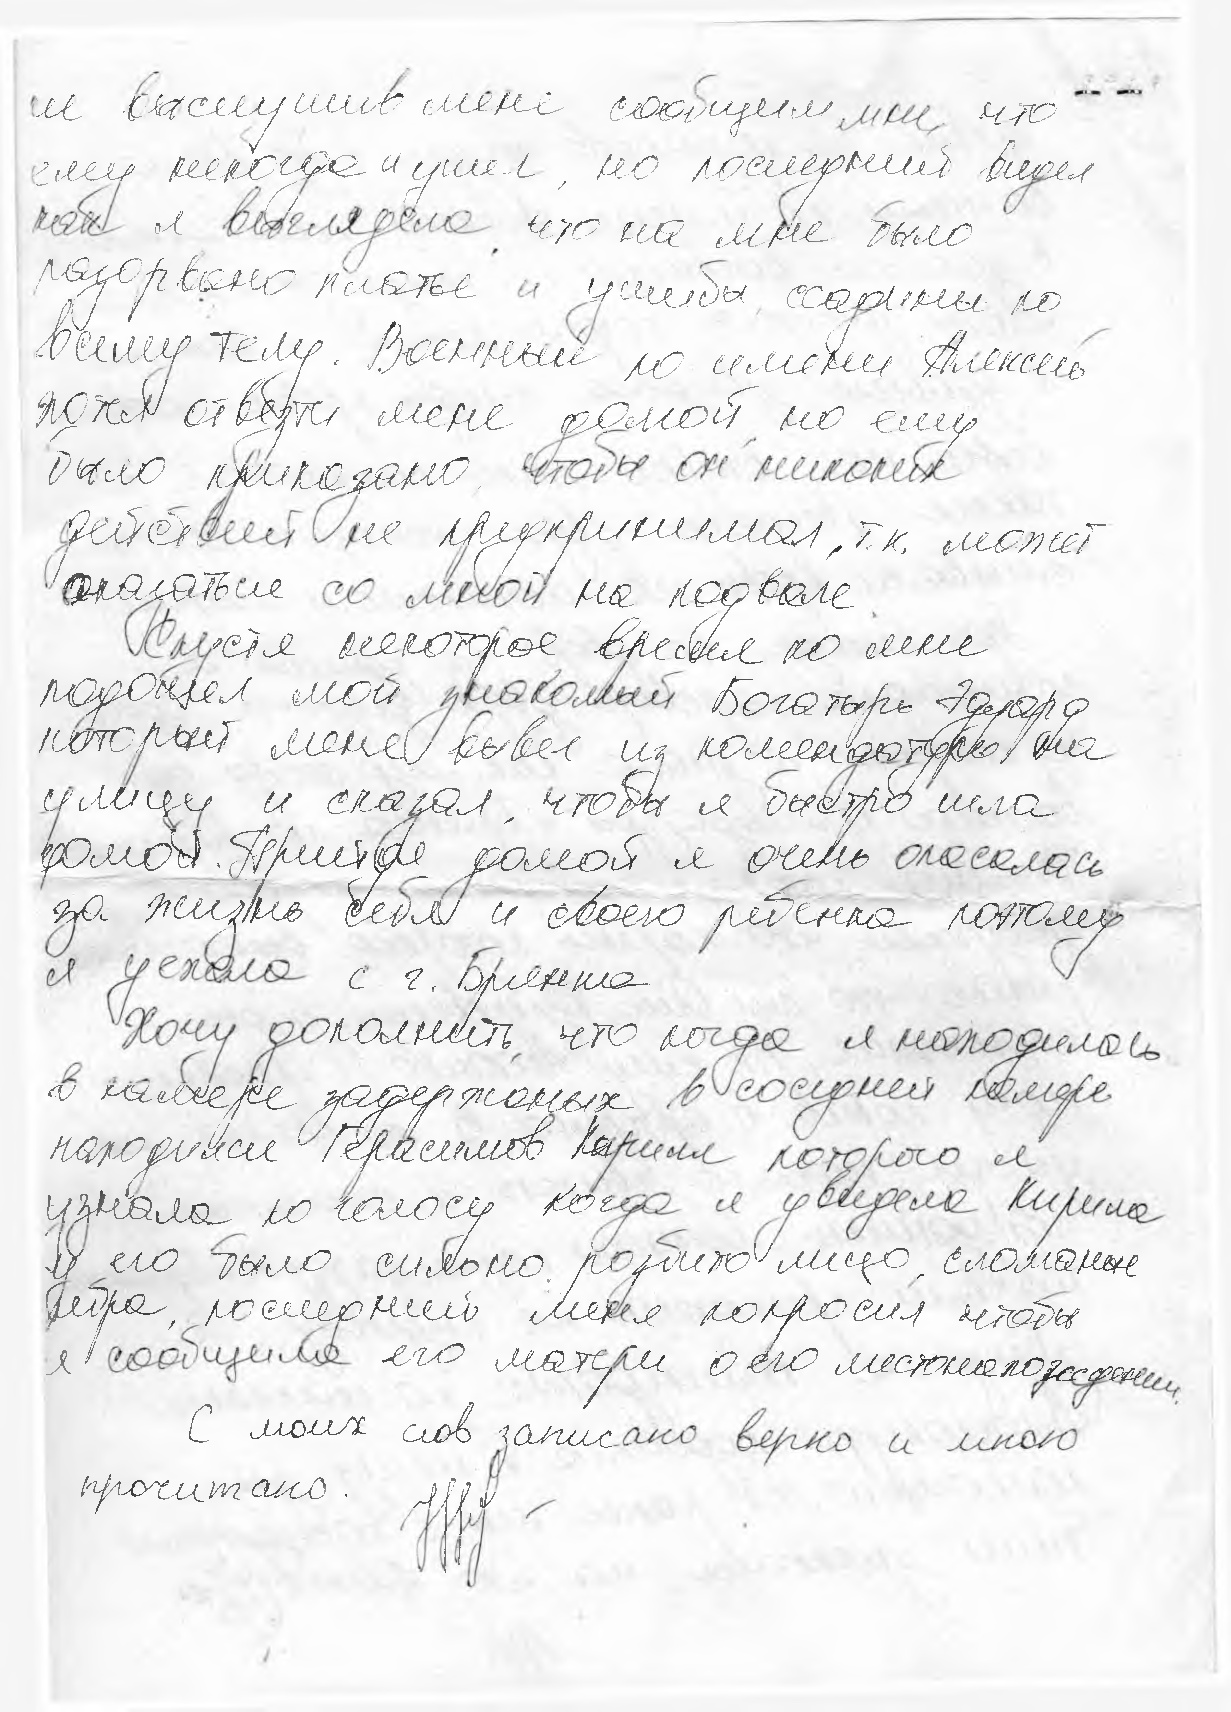 и выслушив мене сообщил мне, что
ему некогда и ушел, но последний видел
как я выглядела, что на мне было
разорвано платье и ушибы, ссадины по
всему телу. Военный по имени Алексей
хотел отвезти мене домой, но ему
было приказано, чтобы он никаких
действий не предпринимал, т.к. может
оказаться со мной на подвале.
Спустя некоторое время ко мне
подошел мой знакомый Богатырь Эдуард
который мене вывел из комендатуры на
улицу и сказал, чтобы я быстро шла
домой. Прийдя домой я очень опасалась
за жизнь себя и своего ребенка поэтому
я уехала с г. Брянка
Хочу дополнить, что когда я находилась
в камере задержаных в соседней камере
находился Герасимов Кирилл которого я
узнала по голосу когда я увидела Кирила
у его было сильно розбито лицо, сломаные
ребра, последний меня попросил чтобы
я сообщила его матери о его местонахождении.
С моих слов записано верно и мною
прочитано.